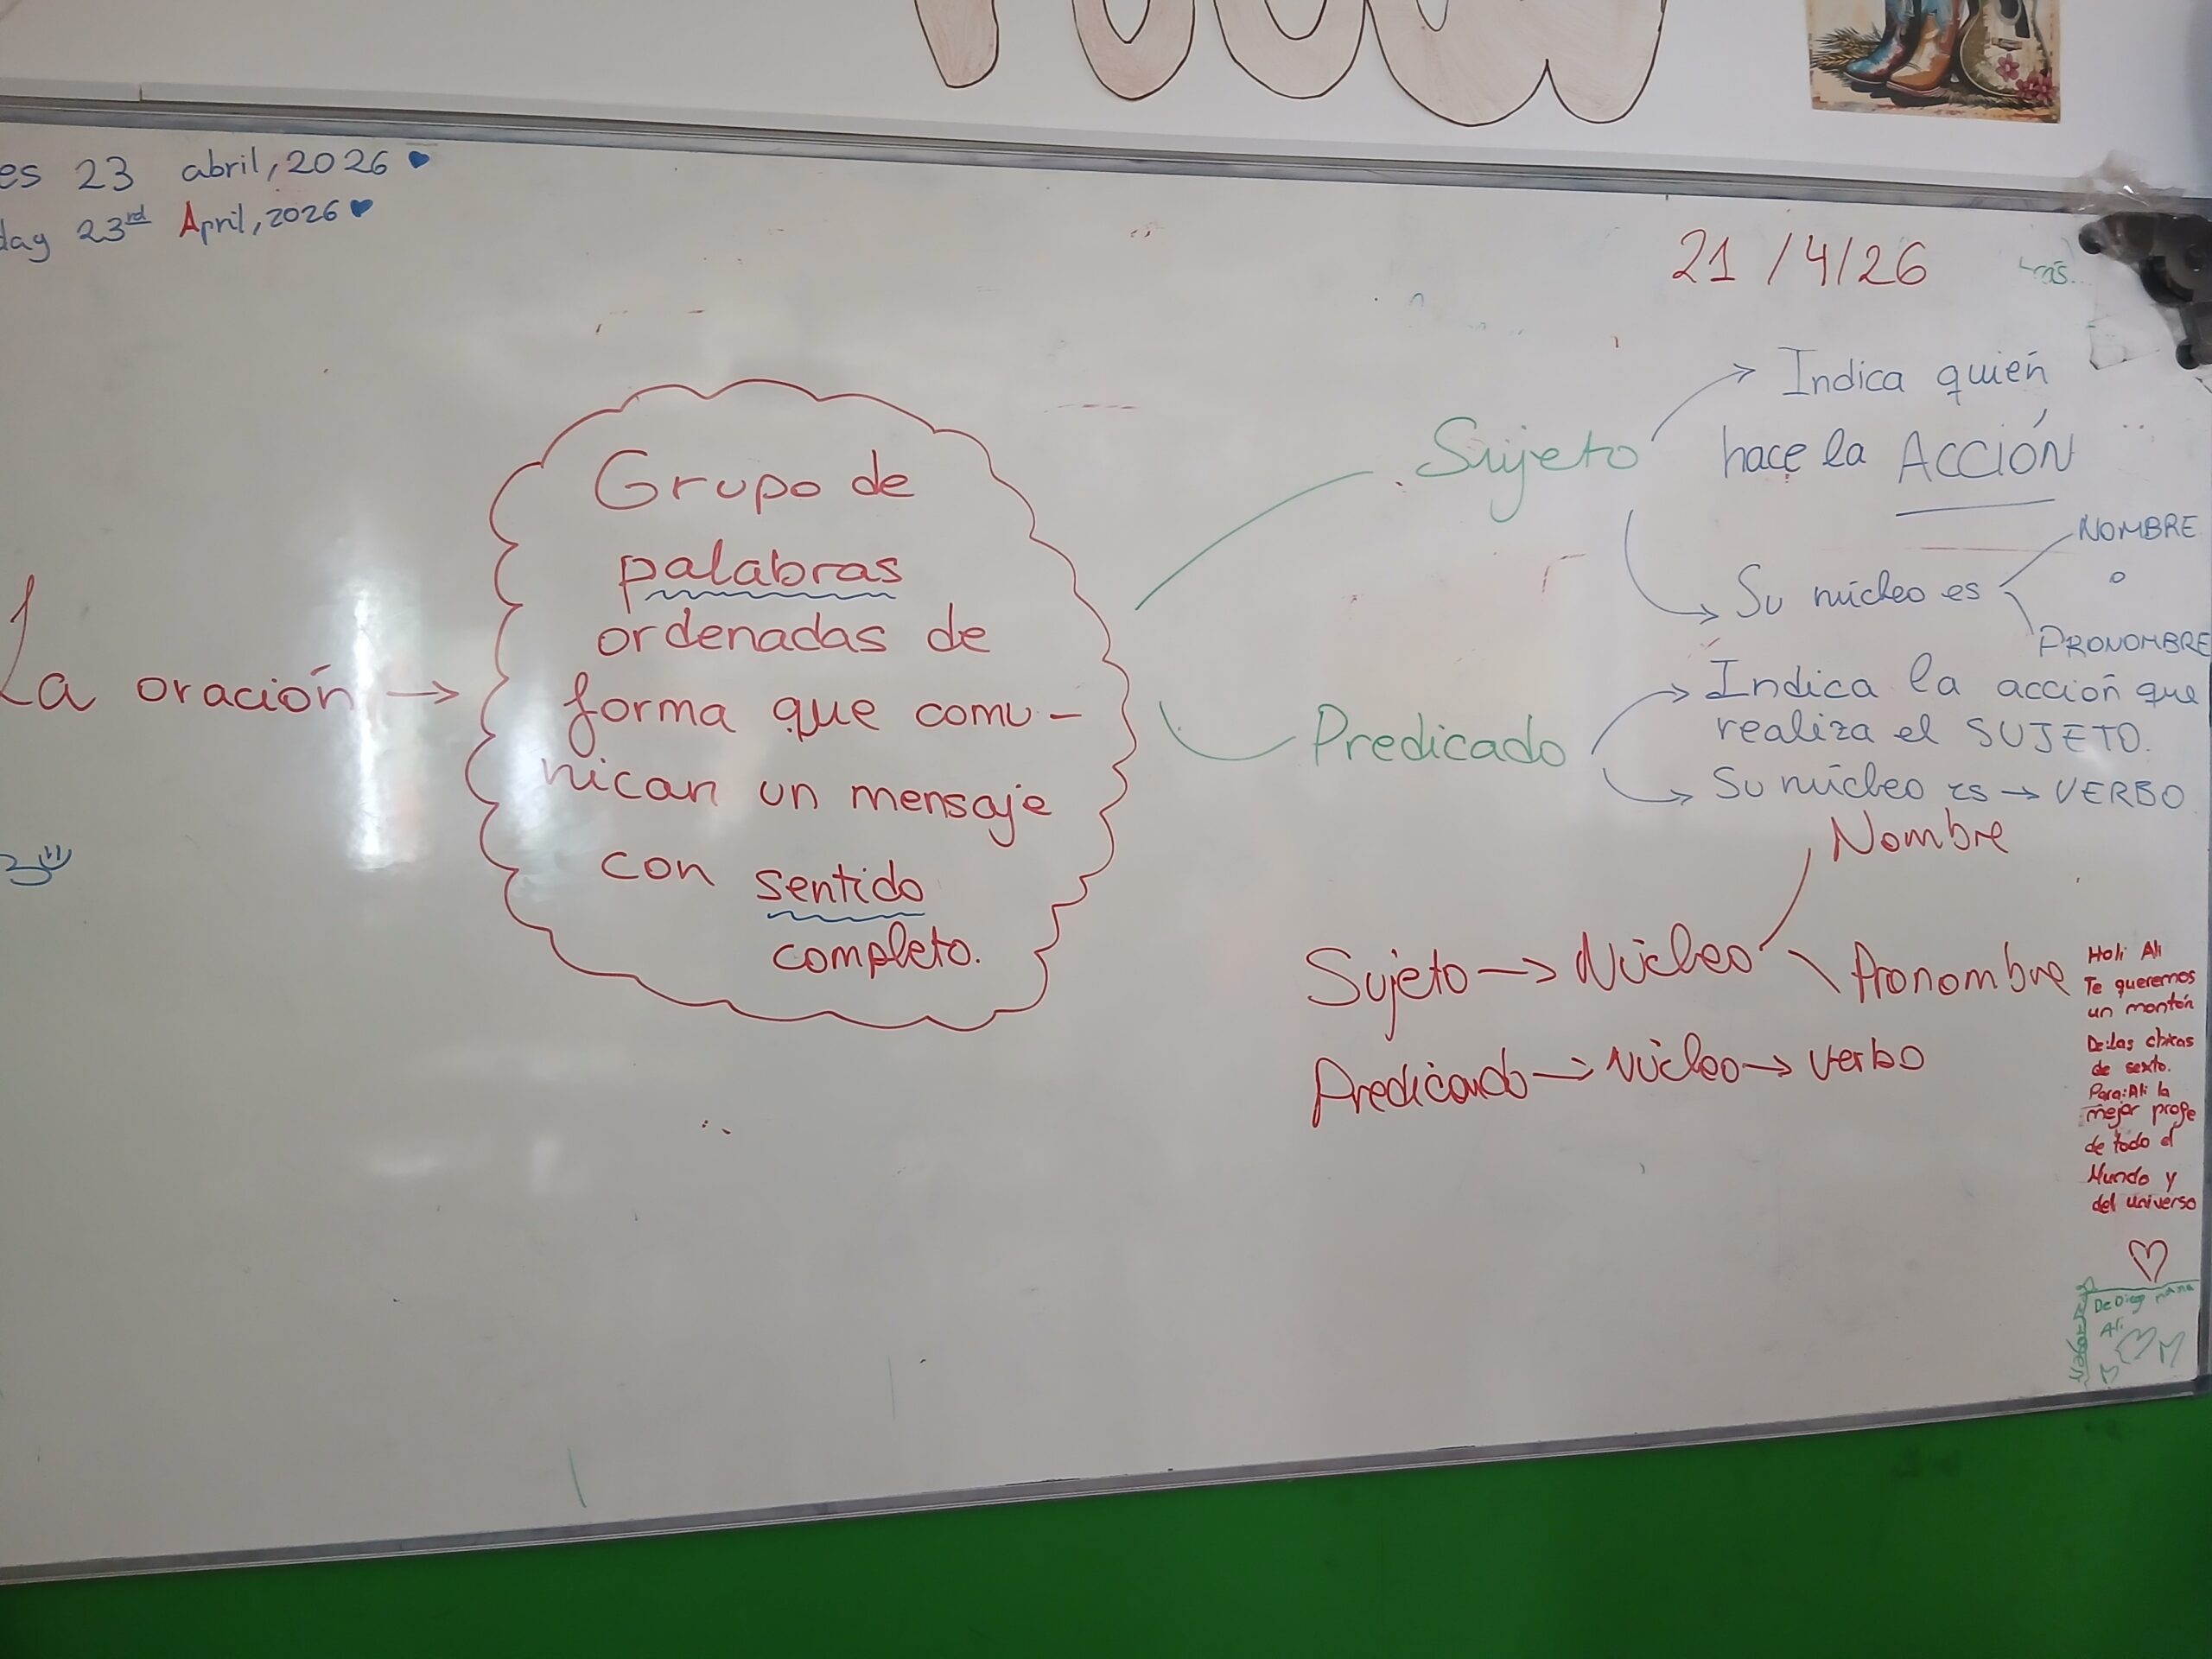 es 23 abril, 2026
day 23rd April, 2026
21/4/26
La oración →
Grupo de
palabras
ordenadas de
forma que comu-
nican un mensaje
con sentido
completo.
Sujeto
Indica quién
hace la ACCIÓN
Su núcleo es
NOMBRE
o
PRONOMBRE
Predicado
Indica la acción que
realiza el SUJETO.
Su núcleo es → VERBO
Nombre
Sujeto → Núcleo
Pronombre
Predicado → Núcleo → Verbo
Holi Ali
Te queremos
un montón
De: las chicas
de sexto.
Para: Ali la
mejor profe
de todo el
Mundo y
del universo
De Diego para
Ali